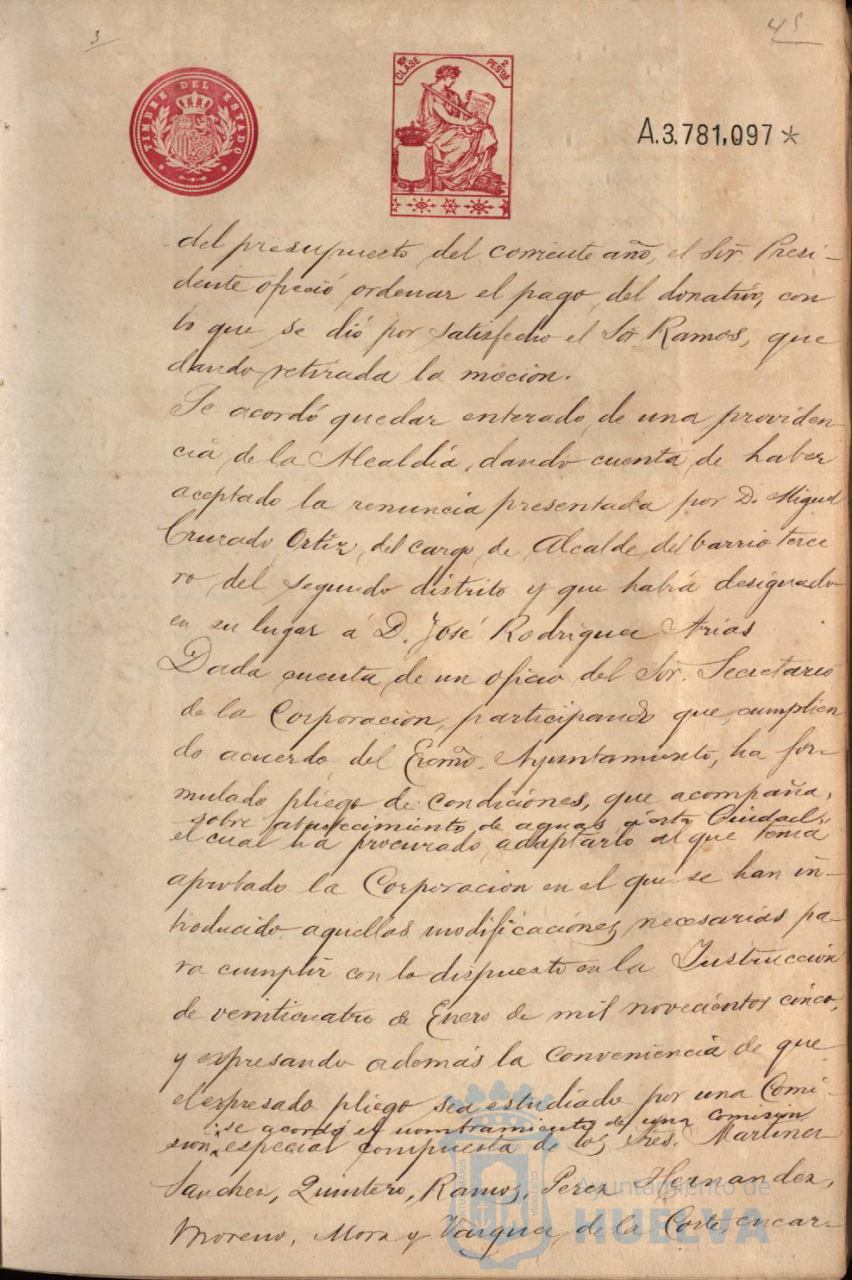 3
45
TIMBRE DEL ESTADO
10ª CLASE
2 PESTAS
A.3.781,097*
del presupuesto del corriente año, el Sor. Presi-
dente ofreció ordenar el pago del donativo, con
lo que se dió por satisfecho el Sor Ramos, que
dando retirada la moción.
Se acordó quedar enterado de una providen
cia de la Alcaldía, dando cuenta de haber
aceptado la renuncia presentada por D. Miguel
Cruzado Ortíz, del cargo de Alcalde del barrio terce
ro del segundo distrito y que habia designado
en su lugar á D. José Rodriguez Arias
Dada cuenta de un oficio del Sor. Secretario
de la Corporación, participando que cumplien
do acuerdo del Excmo. Ayuntamiento, ha for-
mulado pliego de condiciones, que acompaña,
sobre abastecimiento de aguas á esta Ciudad,
el cual ha procurado adaptarlo al que tenia
aprobado la Corporación en el que se han in-
troducido aquellas modificaciones necesarias pa-
ra cumplir con lo dispuesto en la Instrucción
de veinticuatro de Enero de mil novecientos cinco,
y expresando además la conveniencia de que
el expresado pliego sea estudiado por una Comi-
se acordó el nombramiento de una comisión
sión especial compuesta de los Sres. Martinez
Sanchez, Quintero, Ramos, Perez Hernandez,
Moreno, Mora y Vazquez de la Corte, encar-
Ayuntamiento de
HUELVA